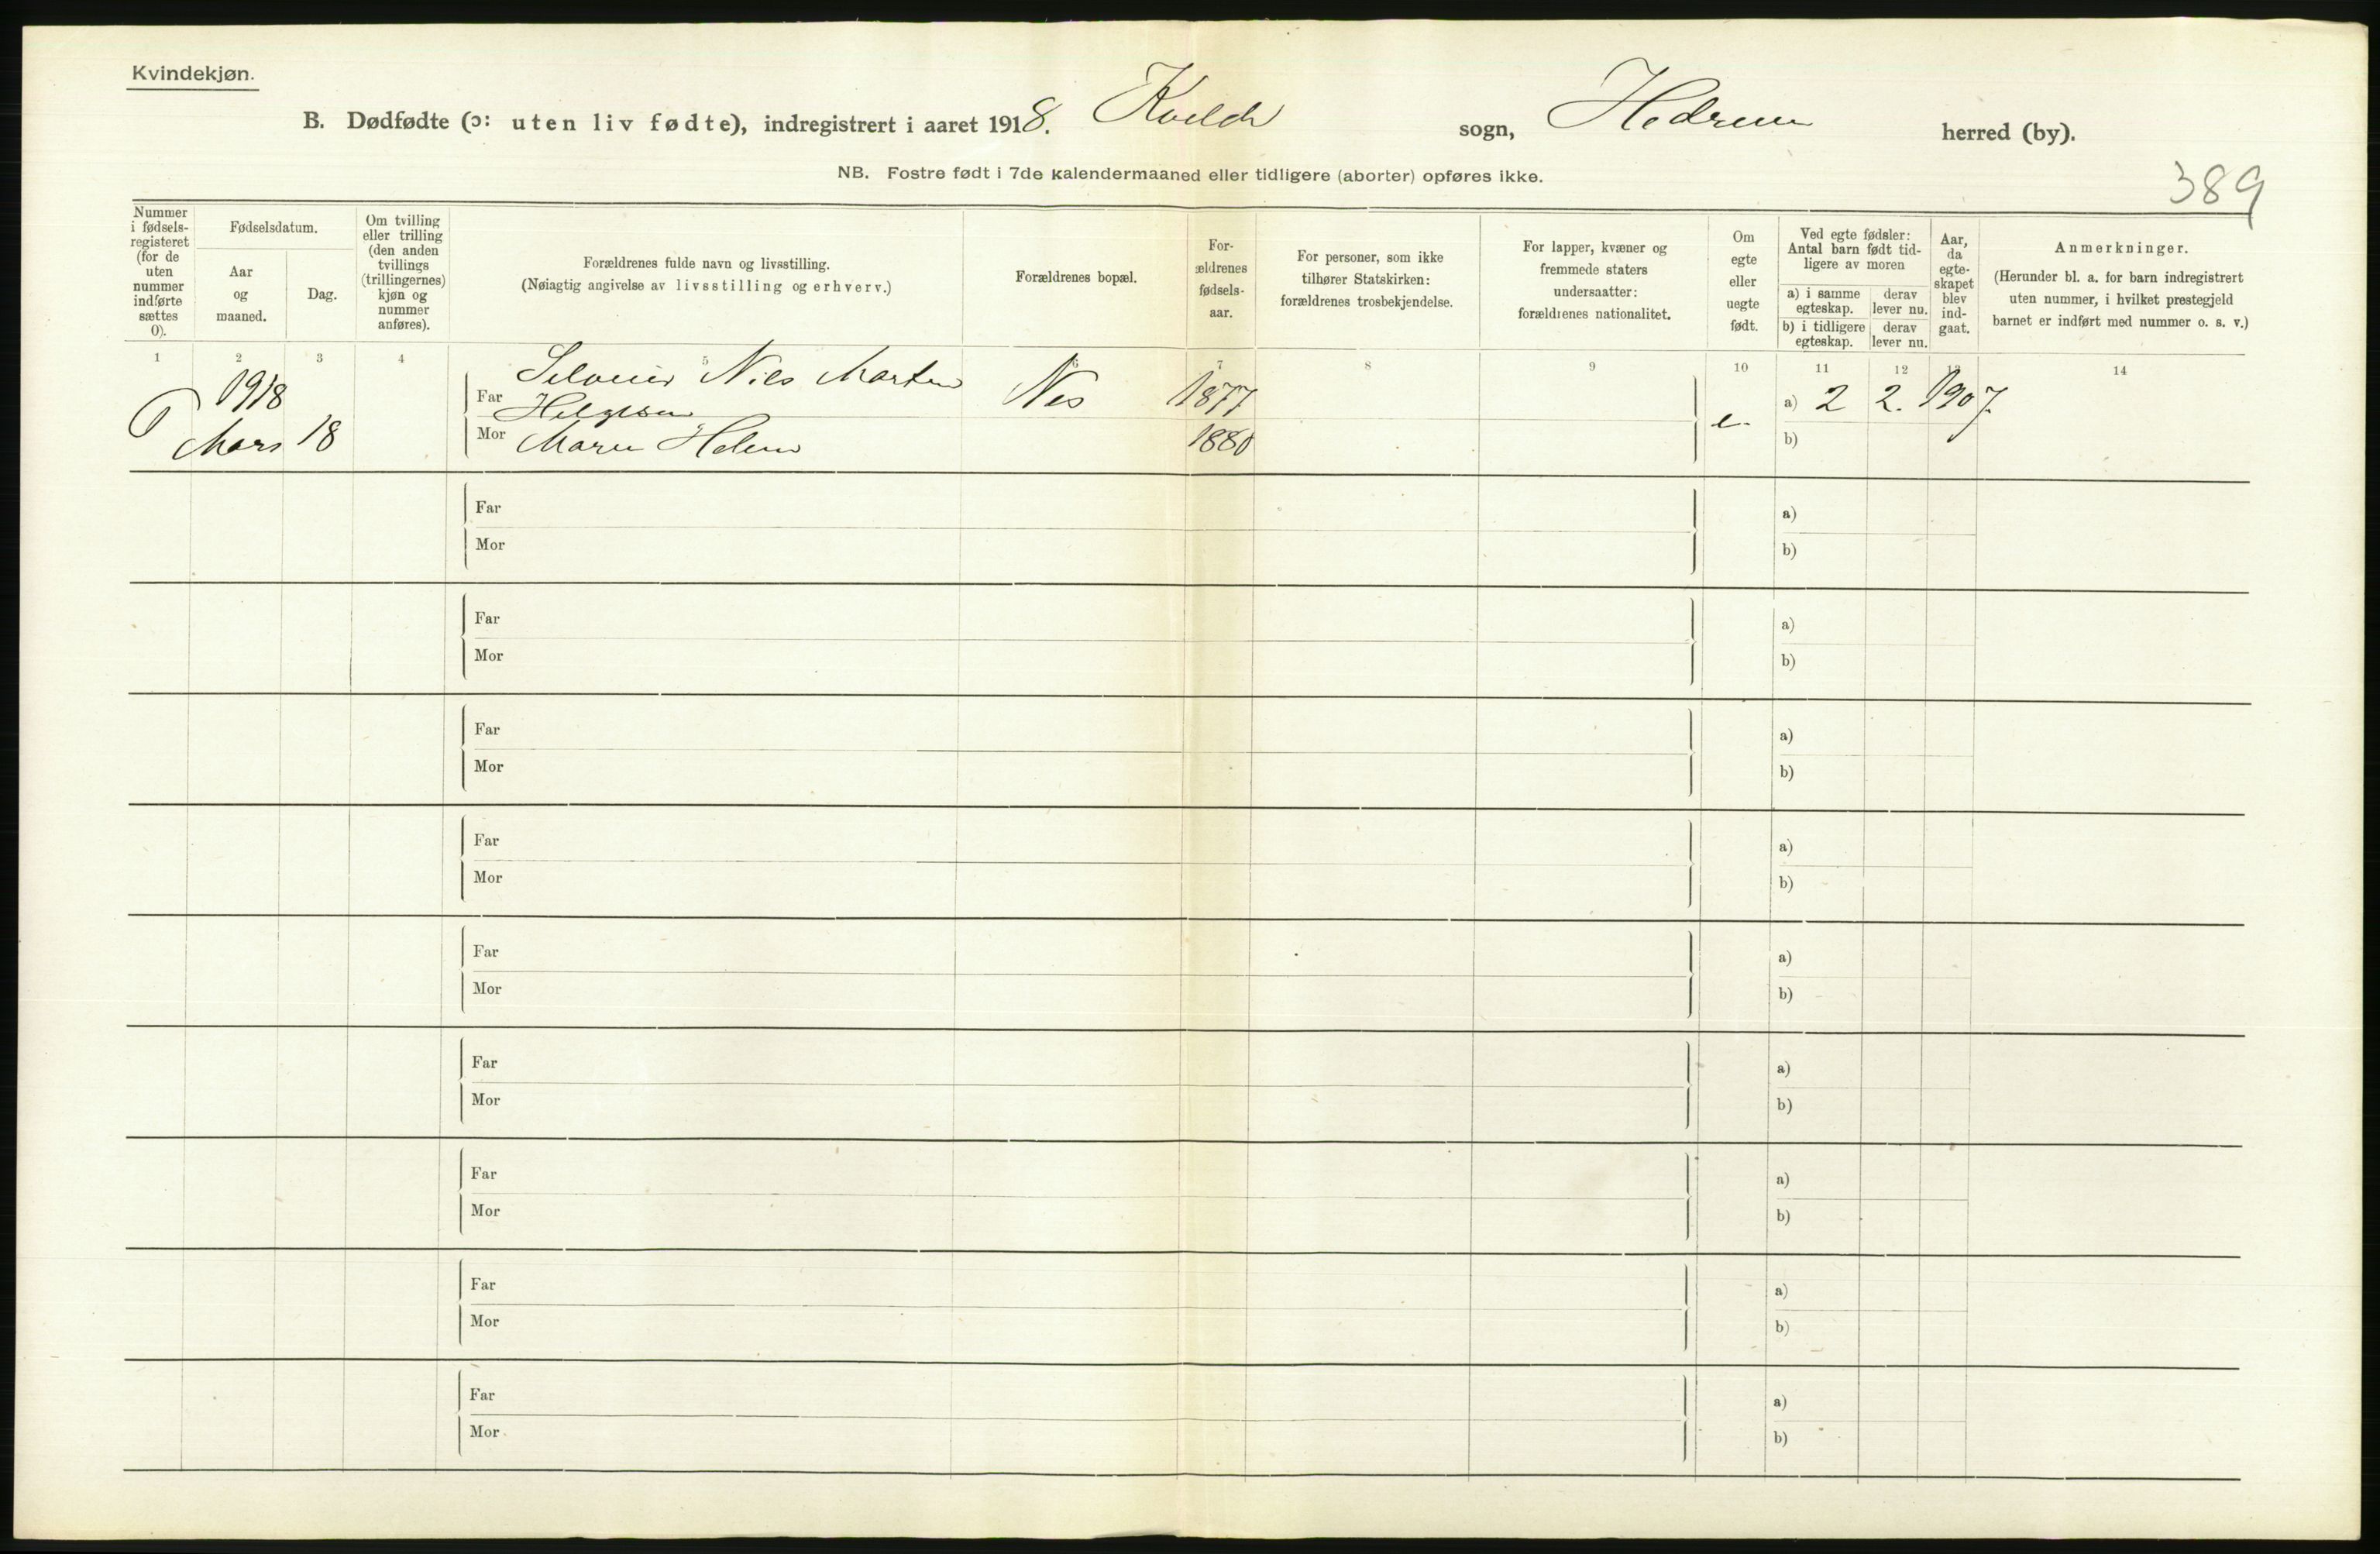 Kvindekjøn.
B. Dødfødte (ɔ: uten liv fødte), indregistrert i aaret 1918. Kvelde sogn, Hedrum herred (by).
NB. Fostre født i 7de kalendermaaned eller tidligere (aborter) opføres ikke.
389
Nummer i fødsels-registeret (for de uten nummer indførte sættes 0).
Fødselsdatum.
Aar og maaned.
Dag.
Om tvilling eller trilling (den anden tvillings (trillingernes) kjøn og nummer anføres).
Forældrenes fulde navn og livsstilling.
(Nøiagtig angivelse av livsstilling og erhverv.)
Forældrenes bopæl.
For-ældrenes fødsels-aar.
For personer, som ikke tilhører Statskirken: forældrenes trosbekjendelse.
For lapper, kvæner og fremmede staters undersaatter: forældrenes nationalitet.
Om egte eller uegte født.
Ved egte fødsler: Antal barn født tid-ligere av moren
a) i samme egteskap. derav lever nu.
b) i tidligere egteskap. derav lever nu.
Aar, da egte-skapet blev ind-gaat.
Anmerkninger.
(Herunder bl. a. for barn indregistrert uten nummer, i hvilket prestegjeld barnet er indført med nummer o. s. v.)
1 2 3 4 5 7 8 9 10 11 12 13 14
1918 Far Nils Martin Nes 1877 a) 2 2. 1907.
Helgesen
Mars 18 Mor Maren Helene 1880 e. b)
Far a)
Mor b)
Far a)
Mor b)
Far a)
Mor b)
Far a)
Mor b)
Far a)
Mor b)
Far a)
Mor b)
Far a)
Mor b)
Far a)
Mor b)
Far a)
Mor b)